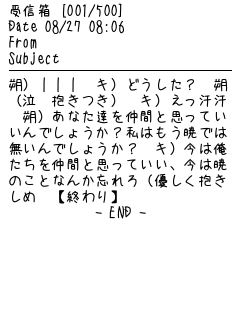 受信箱 [001/500]
Date 08/27 08:06
From
Subject
朔）｜｜｜　キ）どうした？　朔
（泣　抱きつき）　キ）えっ汗汗
　朔）あなた達を仲間と思ってい
いんでしょうか？私はもう暁では
無いんでしょうか？　キ）今は俺
たちを仲間と思っていい、今は暁
のことなんか忘れろ（優しく抱き
しめ　【終わり】
－ END －